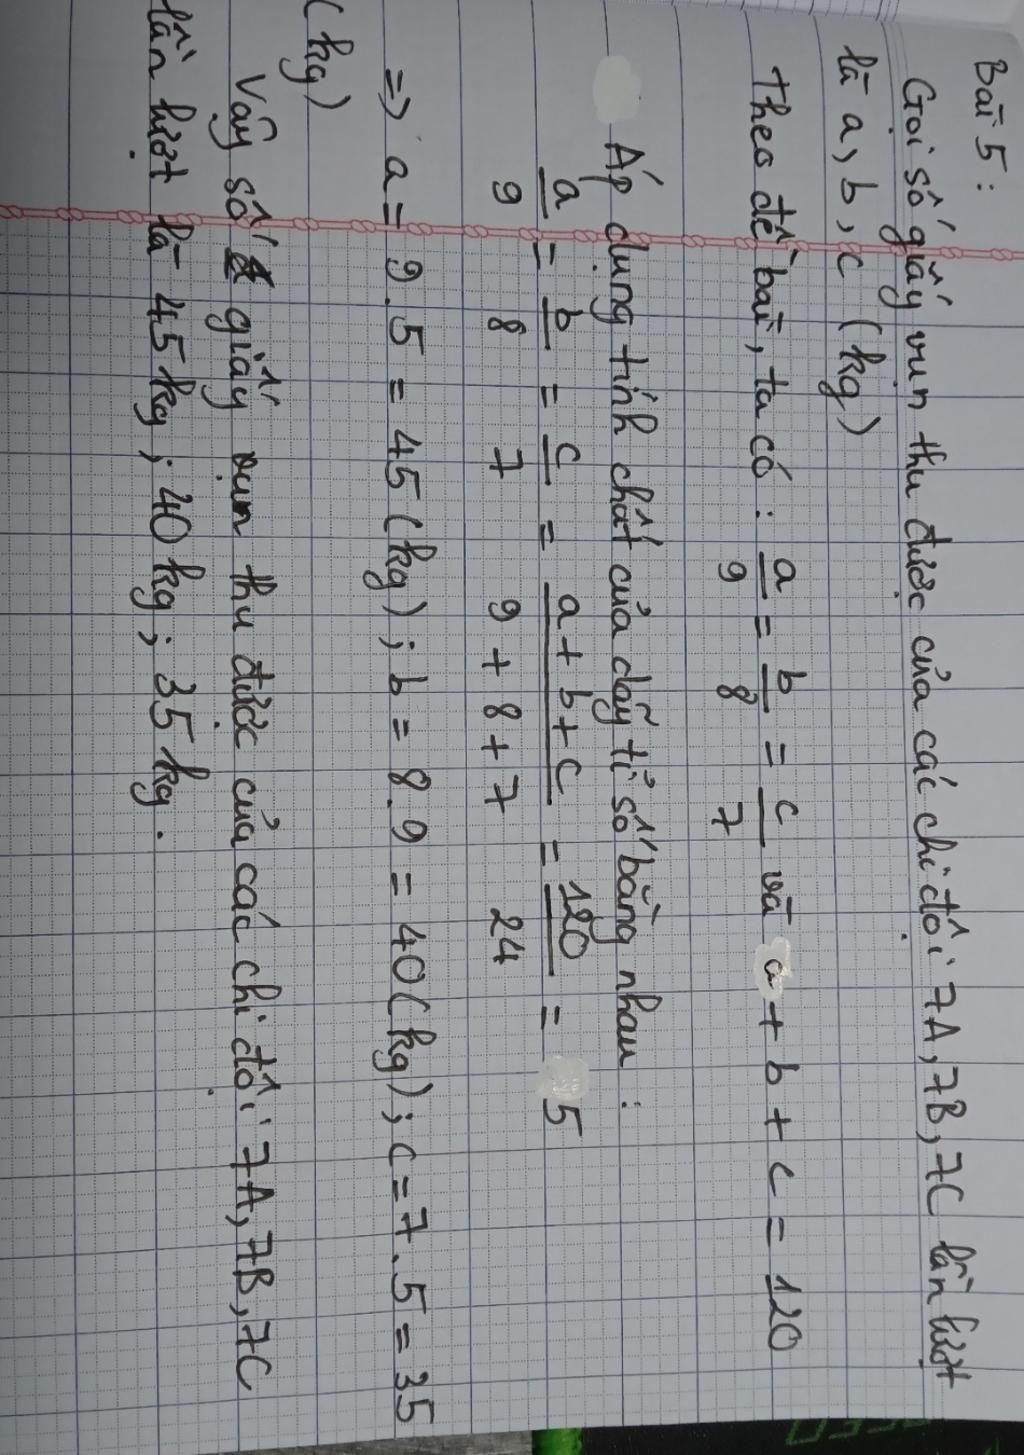 Bài 5:
Gọi số giấy vụn thu được của các chi đội 7A, 7B, 7C lần lượt
là a, b, c (kg)
Theo đề bài, ta có: a/9 = b/8 = c/7 và a + b + c = 120
Áp dụng tính chất của dãy tỉ số bằng nhau:
a/9 = b/8 = c/7 = (a + b + c)/(9 + 8 + 7) = 120/24 = 5
=> a = 9.5 = 45 (kg); b = 8.9 = 40 (kg); c = 7.5 = 35
(kg)
Vậy số giấy vụn thu được của các chi đội 7A, 7B, 7C
lần lượt là 45 kg; 40 kg; 35 kg.